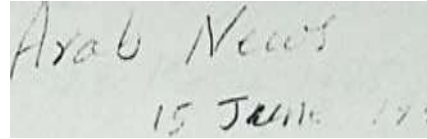 Arab News
15 June